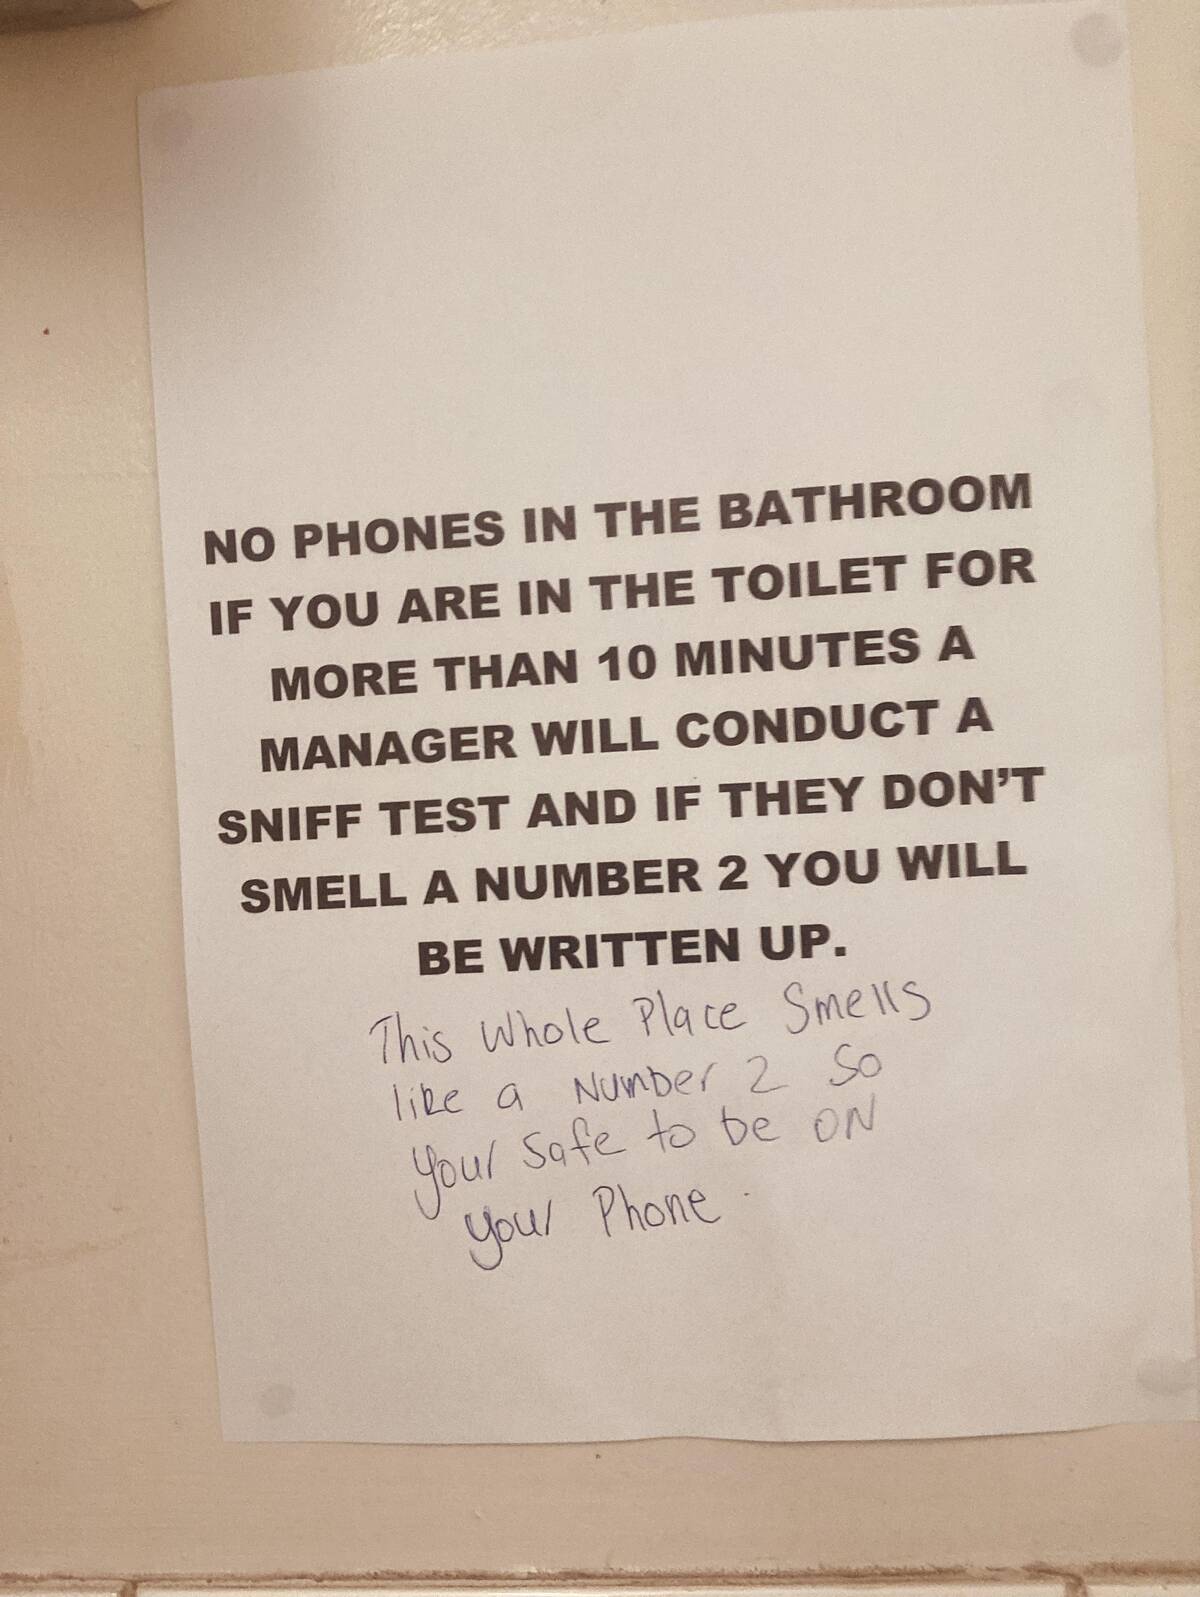 NO PHONES IN THE BATHROOM
IF YOU ARE IN THE TOILET FOR
MORE THAN 10 MINUTES A
MANAGER WILL CONDUCT A
SNIFF TEST AND IF THEY DON'T
SMELL A NUMBER 2 YOU WILL
BE WRITTEN UP.
This Whole Place Smells
like a Number 2 So
your Safe to be ON
your Phone.